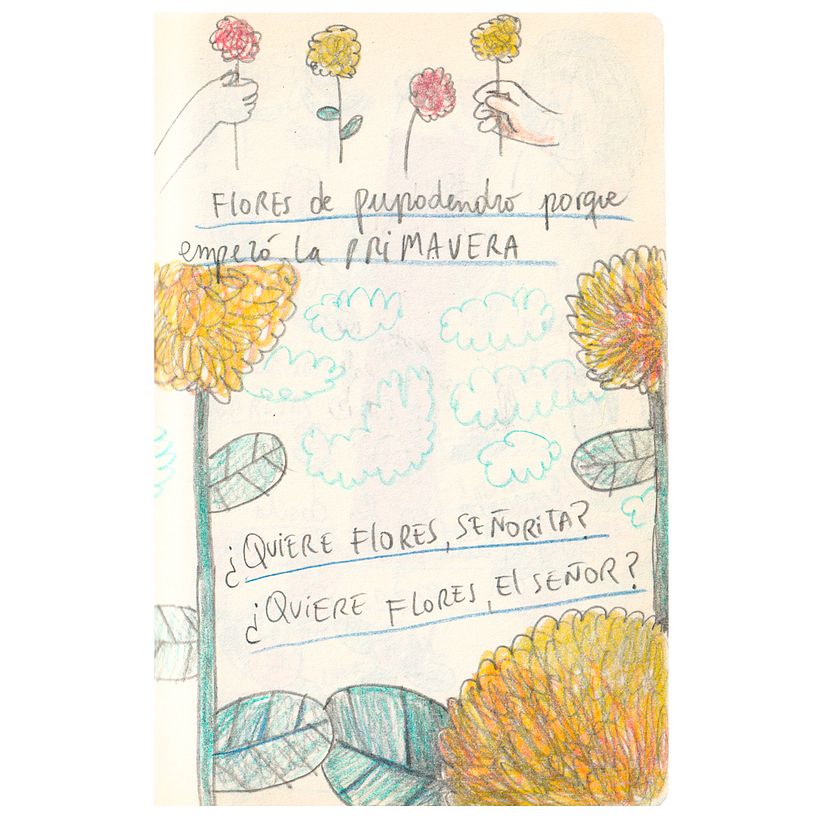 FLORES de pupodendro porque
empezó la PRIMAVERA
¿QUIERE FLORES, SEÑORITA?
¿QUIERE FLORES, El SEÑOR?